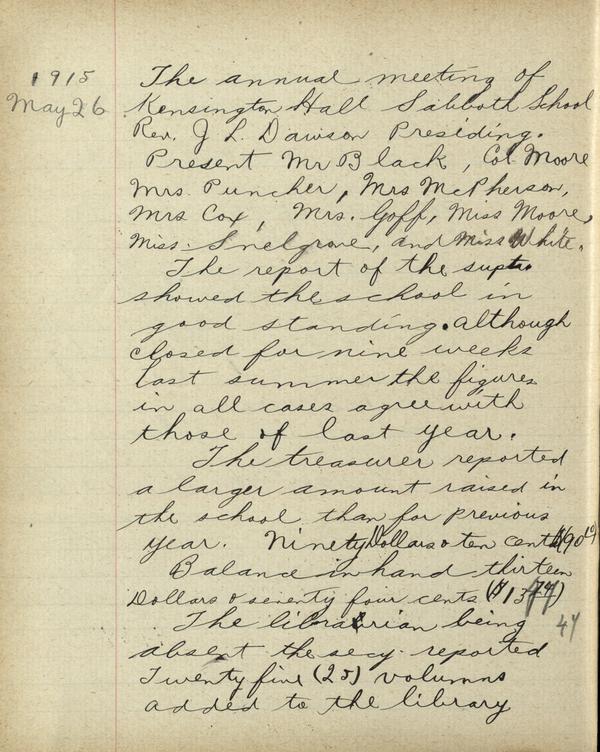 1915
May 26
The annual meeting of
Kensington Hall Sabboth School
Rev. J L. Dawson Presiding.
Present Mr Black, Col. Moore
Mrs. Puncher, Mrs McPherson,
Mrs Cox, Mrs. Goff, Miss Moore,
Miss. Snelgrove, and Miss White.
The report of the supt.
showed the school in
good standing. although
closed for nine weeks
last summer the figures
in all cases agree with
those of last year.
The treasurer reported
a larger amount raised in
the school than for previous
year. Ninety Dollars & ten cents
Balance in hand thirteen
Dollars & seventy four cents
The librarian being
47
absent the secy. reported
Twenty five (25) volumns
added to the library